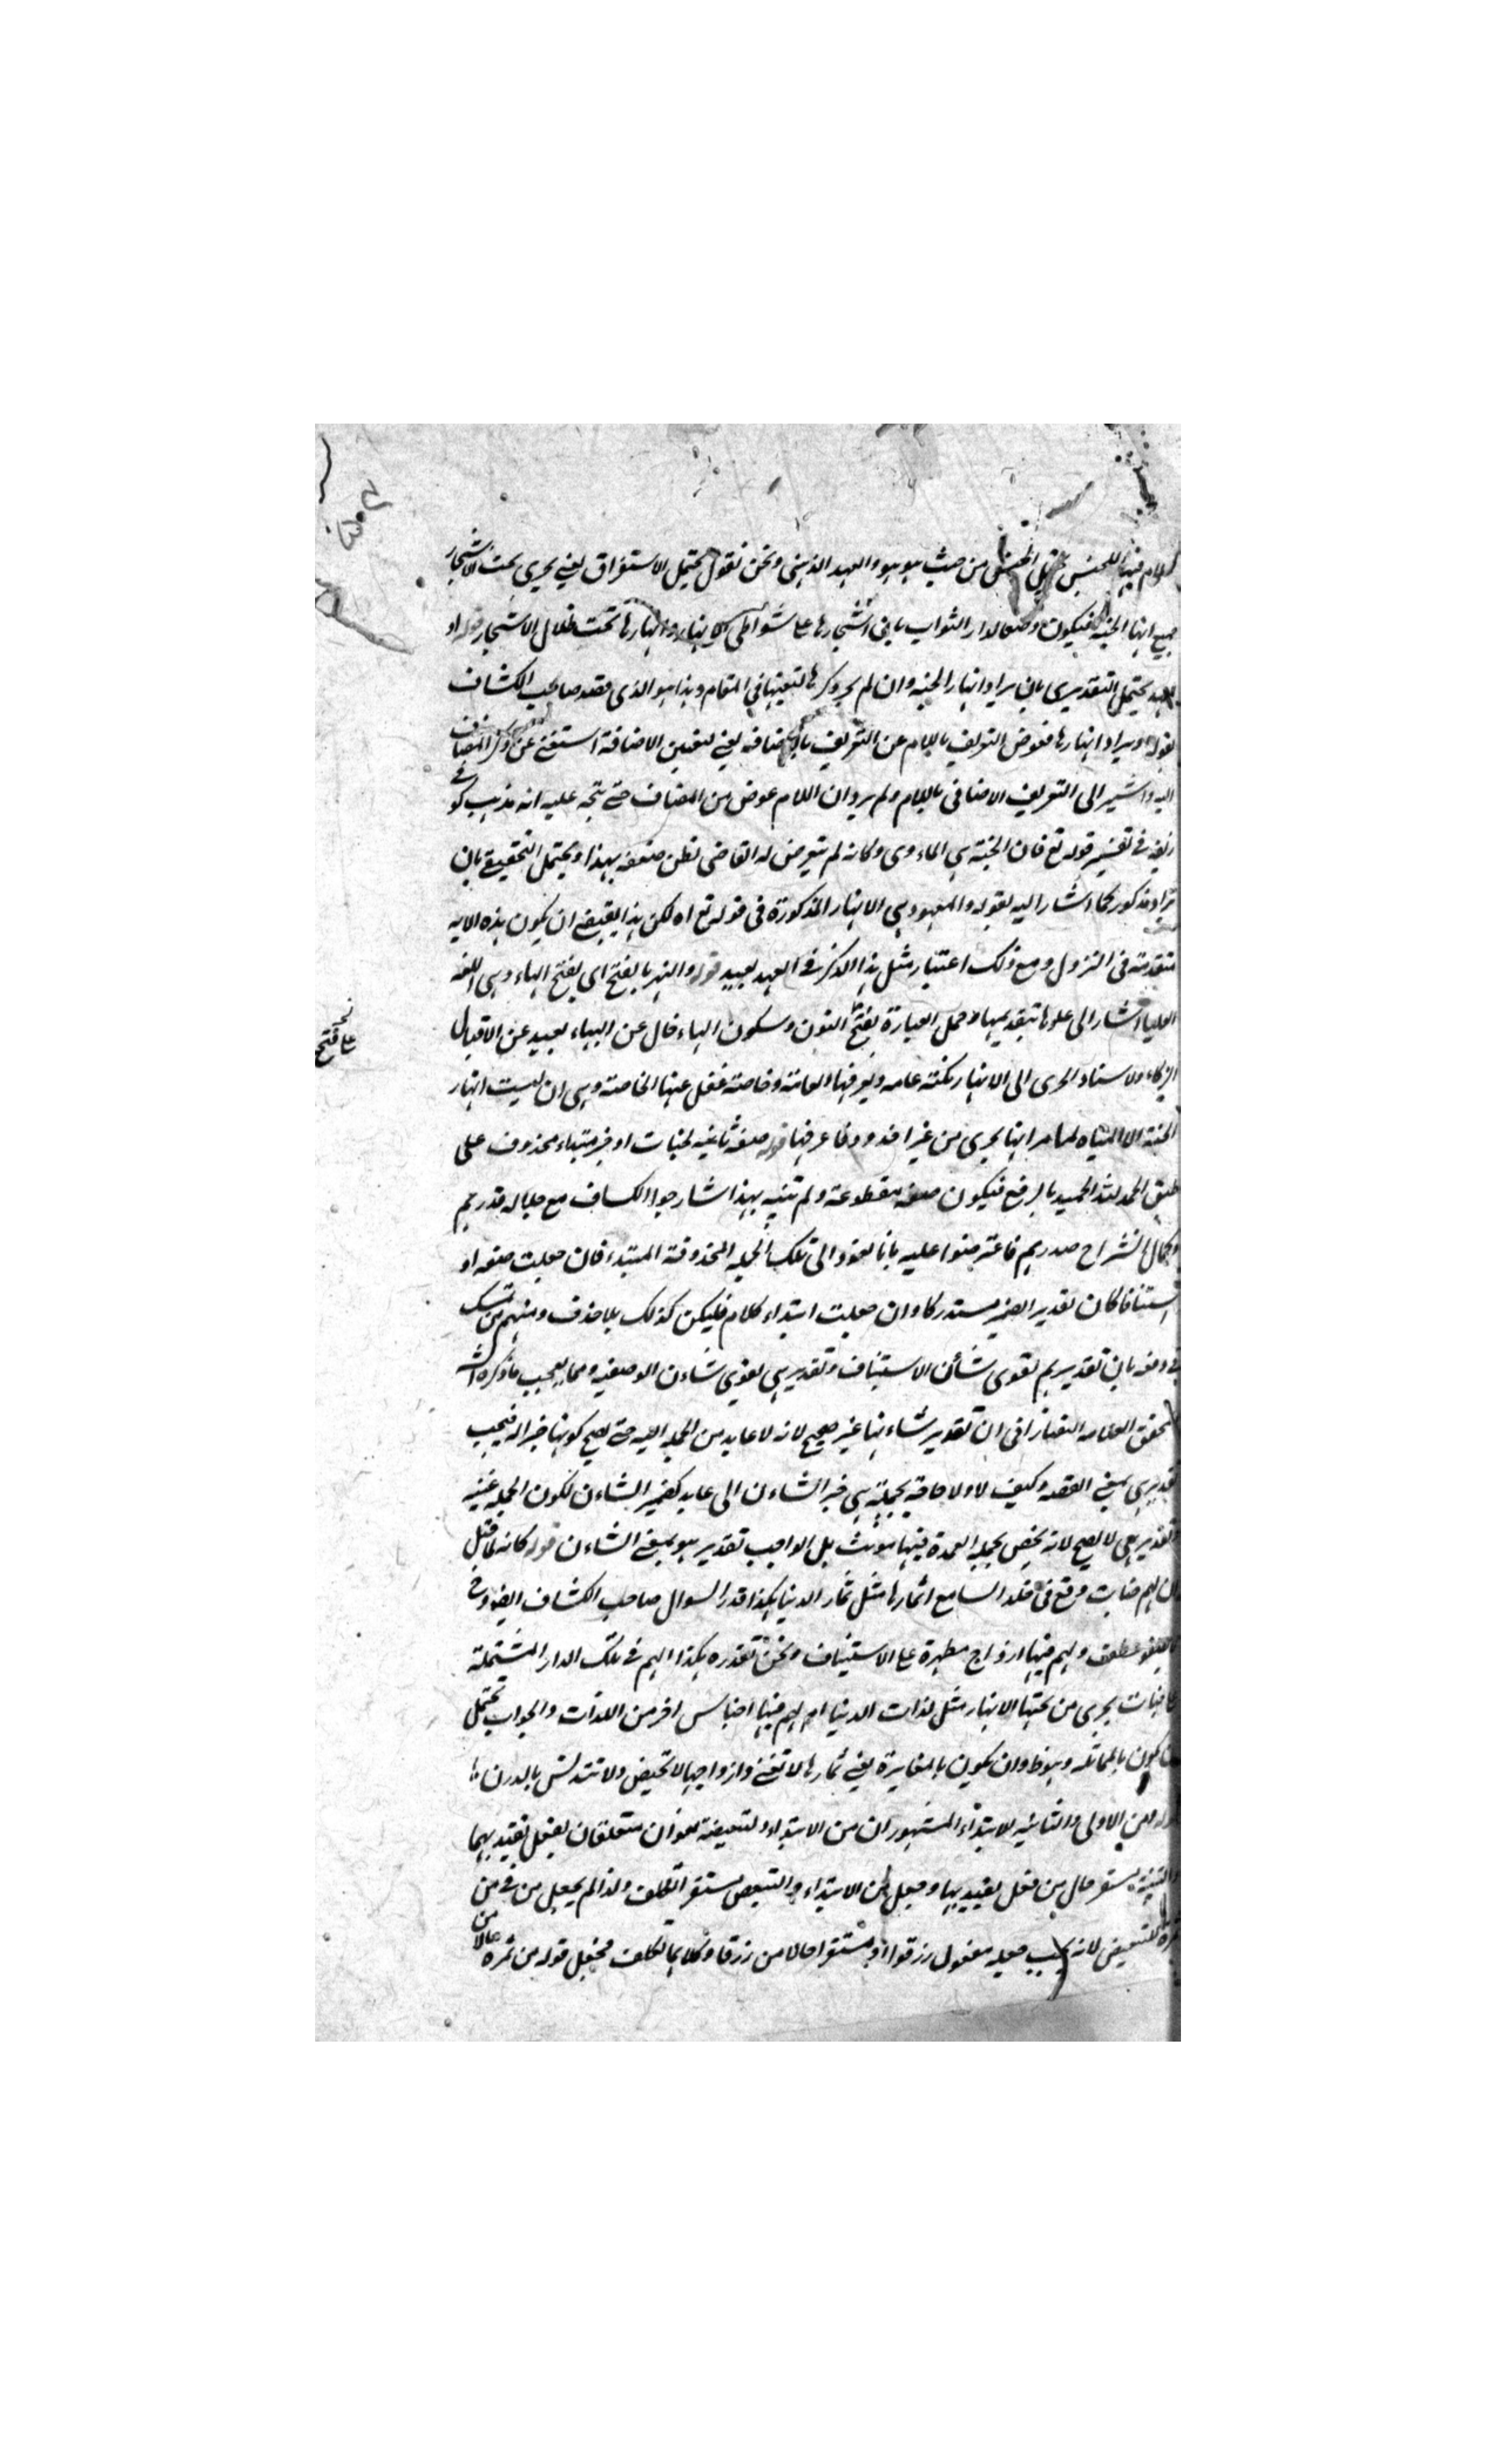 اللام فيها للجنس من حيث هو هو والعهد الذهني ونحن نقول يحتمل الاستغراق يعني يجري تحت الاشجار
جميع انهار الجنة فيكون وصفا لدار الثواب بان اشجارها على شواطي الانهار وانهارها تحت ظلال الاشجار قوله او
للعهد يحتمل التقديري بان يراد انهار الجنة وان لم يجر ذكرها لتعينها في المقام وهذا هو الذي قصد صاحب الكشاف
بقوله او يراد انهارها فعوض التعريف باللام عن التعريف بالاضافة يعني لتعين الاضافة استغني عن ذكر المضاف
اليه واشير الى التعريف الاضافي باللام ولم يرد ان اللام عوض من المضاف حتى يتجه عليه انه مذهب كوفي
زيفه في تفسير قوله تع فان الجنة هي الماءوى وكانه لم يتعرض له القاضي لظن ضعفه بهذا ويحتمل التحقيقي بان
يراد مذكور كما اشار اليه بقوله والمعهود هي الانهار المذكورة في قوله تع اه لكن هذا يقتضي ان يكون هذه الاية
متقدمة في النزول ومع ذلك اعتبار مثل هذا الذكر في العهد بعيد قوله والنهر بالفتح اى بفتح الهاء وهي اللغة
العليا اشار الى علوها بتقديمها وحمل العبارة بفتح النون وسكون الهاء خال عن البهاء بعيد عن الاقبال
الزكاء ولاسناد الجرى الى الانهار نكتة عامة ويعرفها العامة وخاصة غفل عنها الخاصة وهي ان ليست انهار
الجنة الا المياه لما مر انها يجرى من غير اخدود وقد عرفتها قوله صفة ثانية لجنات او خبر مبتداء محذوف على
طبق الحمد لله الحميد بالرفع فيكون صفة مقطوعة ولم يتنبه بهذا شارحوا الكشاف مع جلالة قدرهم
وكمال انشراح صدرهم فاعترضوا عليه بانا نعود الى تلك الجملة المحذوفة المبتدء فان جعلت صفة او
استينافا كان تقدير الضمير مستدركا وان جعلت ابتداء كلام فليكن كذلك بلا حذف ومنهم من تمسك
في دفعه بان تقديرهم يقوى شأن الاستيناف وتقدير هي يقوى شاءن الوصفية ومما يعجب ما ذكره الش
المحقق العلامة التفتازاني ان تقدير شاءنها غير صحيح لانه لا عايد من الجملة اليه حتى يصح كونها خبرا له فيجب
تقدير هي بمعنى القصة وكيف لا ولا حاجة لجملة هي خبر الشاءن الى عايد كضمير الشاءن لكون الجملة عينه
وتقدير هي لا يصح لانه يخص بجملة العمدة فيها مؤنث بل الواجب تقدير هو بمعنى الشاءن قوله كانه لما قيل
ان لهم جنات وقع في خلد السامع اثمارها مثل ثمار الدنيا هكذا قدر السوال صاحب الكشاف ايضا وح
عطف ولهم فيها ازواج مطهرة على الاستيناف ونحن نقدره هكذا الهم في تلك الدار المشتملة
جنات يجرى من تحتها الانهار مثل لذات الدنيا ام لهم فيها اجناس اخر من اللذات والجواب يحتمل
ان يكون بالمماثلة وهو ظ وان يكون بالمغايرة يعني ثمارها لا تفنى وازواجها لا تحيض ولا تتدنس بالدرن
قوله ومن الاولى والثانية للابتداء المشهور ان من الابتداء والتبعيضية لغوان متعلقان بفعل تقيد بهما
والتبيينية مستقر حال من فعل يقيد بها وجعل من الابتداء والتبعيض مستقرا تكلف ولذا لم يجعل من في من
ثمرة للتبعيض لانه يجب جعله مفعول رزقوا او مستقرا حالا من رزقا وكلاهما تكلف فجعل قوله من ثمرة حالا
من
على فتح